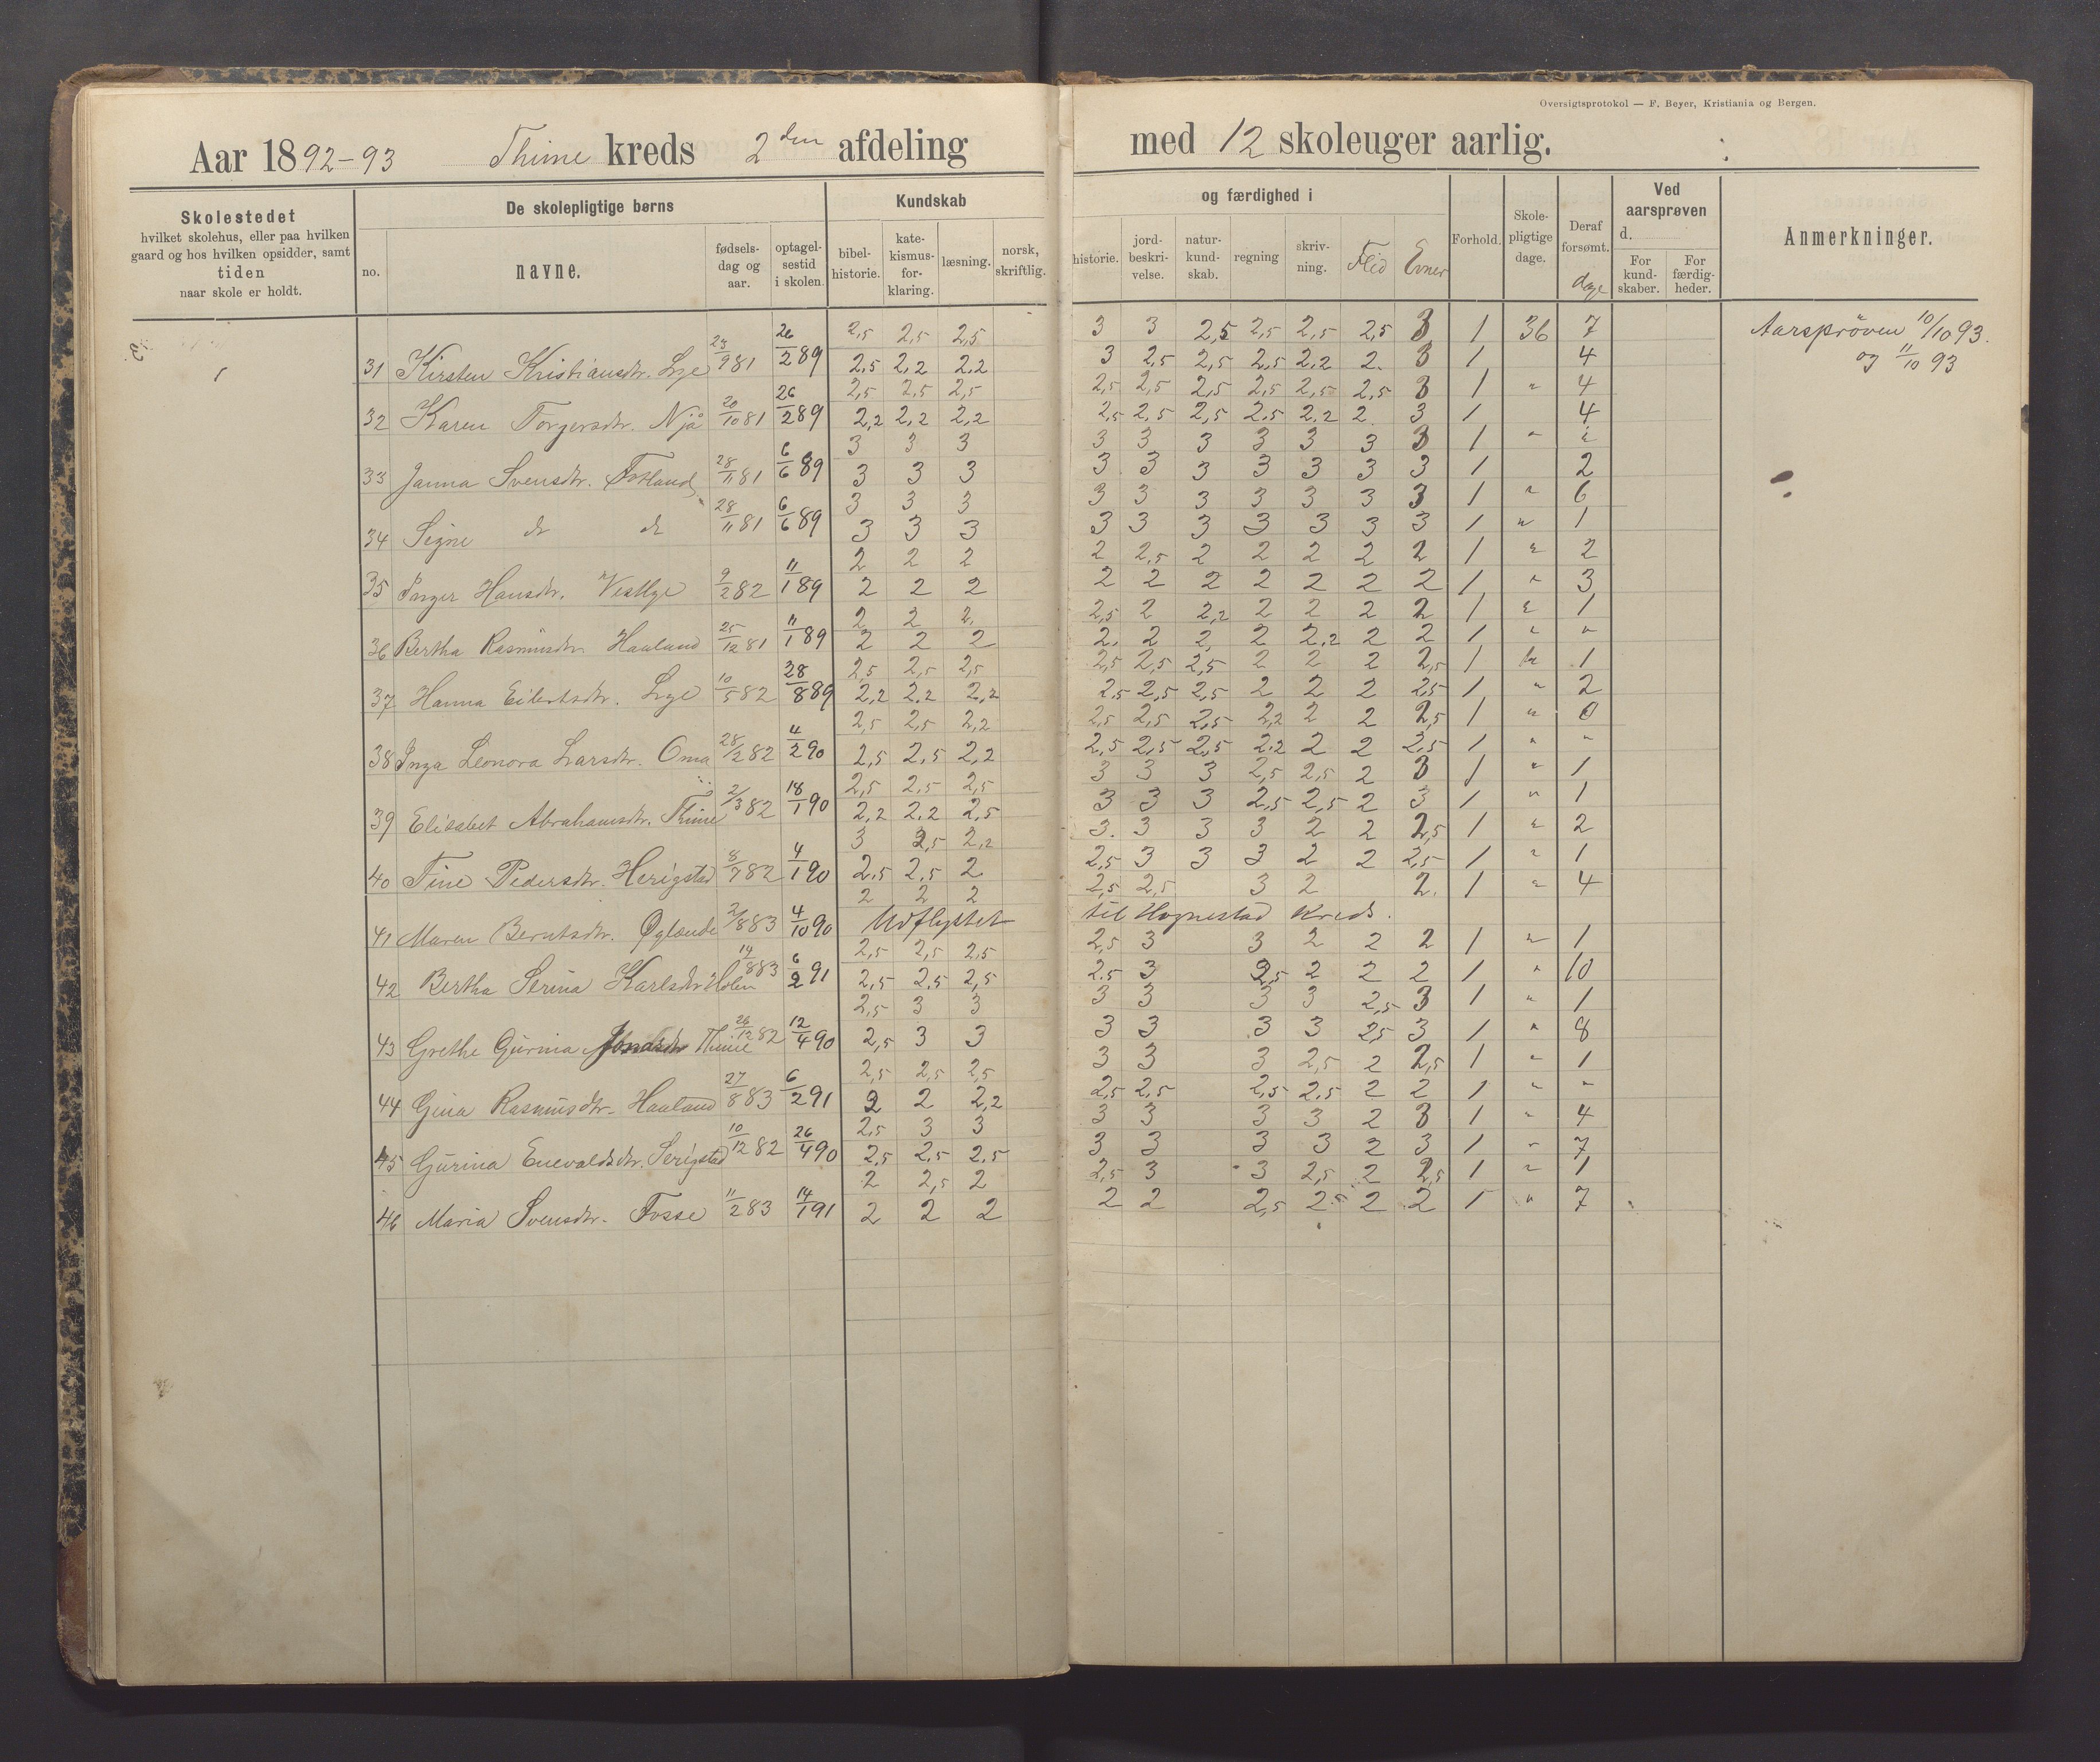 Oversigtsprotokol — F. Beyer, Kristiania og Bergen.
Aar 1892-93 Thime kreds 2den afdeling med 12 skoleuger aarlig.
Skolestedet
hvilket skolehus, eller paa hvilken
gaard og hos hvilken opsidder, samt
tiden
naar skole er holdt.
De skolepligtige børns
no.
navne.
fødsels-
dag og
aar.
optagel-
sestid
i skolen.
Kundskab
bibel-
historie.
kate-
kismus-
for-
klaring.
læsning.
norsk,
skriftlig.
og færdighed i
historie.
jord-
beskri-
velse.
natur-
kund-
skab.
regning
skriv-
ning.
Flid
Evner
Forhold.
Skole-
pligtige
dage.
Deraf
forsømt.
dage
Ved
aarsprøven
d.
For
kund-
skaber.
For
færdig-
heder.
Anmerkninger.
2,5 2,5 2,5 3 3 2,5 2,5 2,5 2,5 3 1 36 7 Aarspröven 10/10 93.
31 Kirsten Kristiansdtr. Lye 23/9 81 26/2 89 2,5 2,2 2,2 3 2,5 2,5 2,5 2,2 2. 3 1 4 og 11/10 93
2,5 2,5 2,5 2,5 2,5 2,5 2,5 2,5 2,5 3 1 " 4
32 Karen Torgersdtr. Njå 20/10 81 26/2 89 2,2 2,2 2,2 2,5 2,5 2,5 2,5 2,2 2. 3 1 4
3 3 3 3 3 3 3 3 3 3 1 "
33 Janna Svensdtr. Fotland 28/11 81 6/6 89 3 3 3 3 3 3 3 3 3 3 1 2
3 3 3 3 3 3 3 3 3 3 1 " 6
34 Signe dr dr 28/11 81 6/6 89 3 3 3 3 3 3 3 3 3 3 1 " 1
2 2 2 2 2,5 2 2 2 2 2 1 " 2
35 Inger Hansdtr. Vestlye 9/2 82 11/1 89 2 2 2 2 2 2 2 2 2 2 1 " 3
2 2 2. 2,5 2 2,2 2 2 2 2 1 " 1
36 Bertha Rasmusdtr Haaland 25/12 81 11/1 89 2 2 2 2. 2 2. 2 2,2 2 2 1 " "
2,5 2,5 2,5 2,5 2,5 2,5 2 2 2 2,5 1 " 1
37 Hanna Eilertsdtr. Lye 10/5 82 28/8 89 2,2 2,2 2,2 2,5 2,5 2,5 2 2 2 2,5 1 " 2
2,5 2,5 2,2 2,5 2,5 2,5 2,2 2 2 2,5 1 " 0
38 Inga Leonora Larsdtr. Oma 28/2 82 4/2 90 2,5 2,5 2,2 2,5 2,5 2,5 2,2 2 2 2,5 1 " "
2,5 2,5 2,5 3 3 3 2,5 2,5 2 3 1 " 1
39 Elisabet Abrahamsdtr. Thime 2/3 82 18/1 90 2,2 2,2 2,5 3 3 3 2,5 2,5 2 3 1 " 1
3 2,5 2,2 3. 3 3 3 2 2 2,5 1 " 2
40 Tine Pedersdtr. Herigstad 8/7 82 4/1 90 2,5 2,5 2 2,5 3 3 3 2 2 2,5 1 " 1
2 2 2 2,5 2,5 3 2 2. 1 " 4
41 Maren Berntsdtr. Øglænde 2/8 83 4/10 90 Udflyttet til Hognestad Kreds.
2,5 2,5 2,5 2,5 3 3 2 2 2 1 " 1
42 Bertha Serina Karlsdtr Holen 14/8 83 6/2 91 2,5 2,5 2,5 2,5 3 2,5 2 2 2 1 " 10
2,5 3 3 3 3 3 3 2,5 3 1 " 1
43 Grethe Gurina Jonasdtr Thime 26/12 82 12/4 90 2,5 3 3 3 3 3 3 2,5 3 1 " 8
2,5 2,5 2,5 3 3 3 2,5 2 2,5 1 " 1
44 Gina Rasmusdtr. Haaland 27/8 83 6/2 91 2 2 2,2 2,5 2,5 2,5 2,5 2 2 1 " "
2,5 3 3 3 3 3 3 2 3 1 " 4
45 Gurina Enevaldsdtr. Serigstad 10/12 82 26/4 90 2,5 2,5 2,5 3 3 3 3 2 3 1 " 7
2 2,5 2 2,5 3 3 2,5 2 2,5 1 " 1
46 Maria Svensdtr. Fosse 11/2 83 14/1 91 2 2 2 2 2 2,5 2,5 2 2 1 " 7